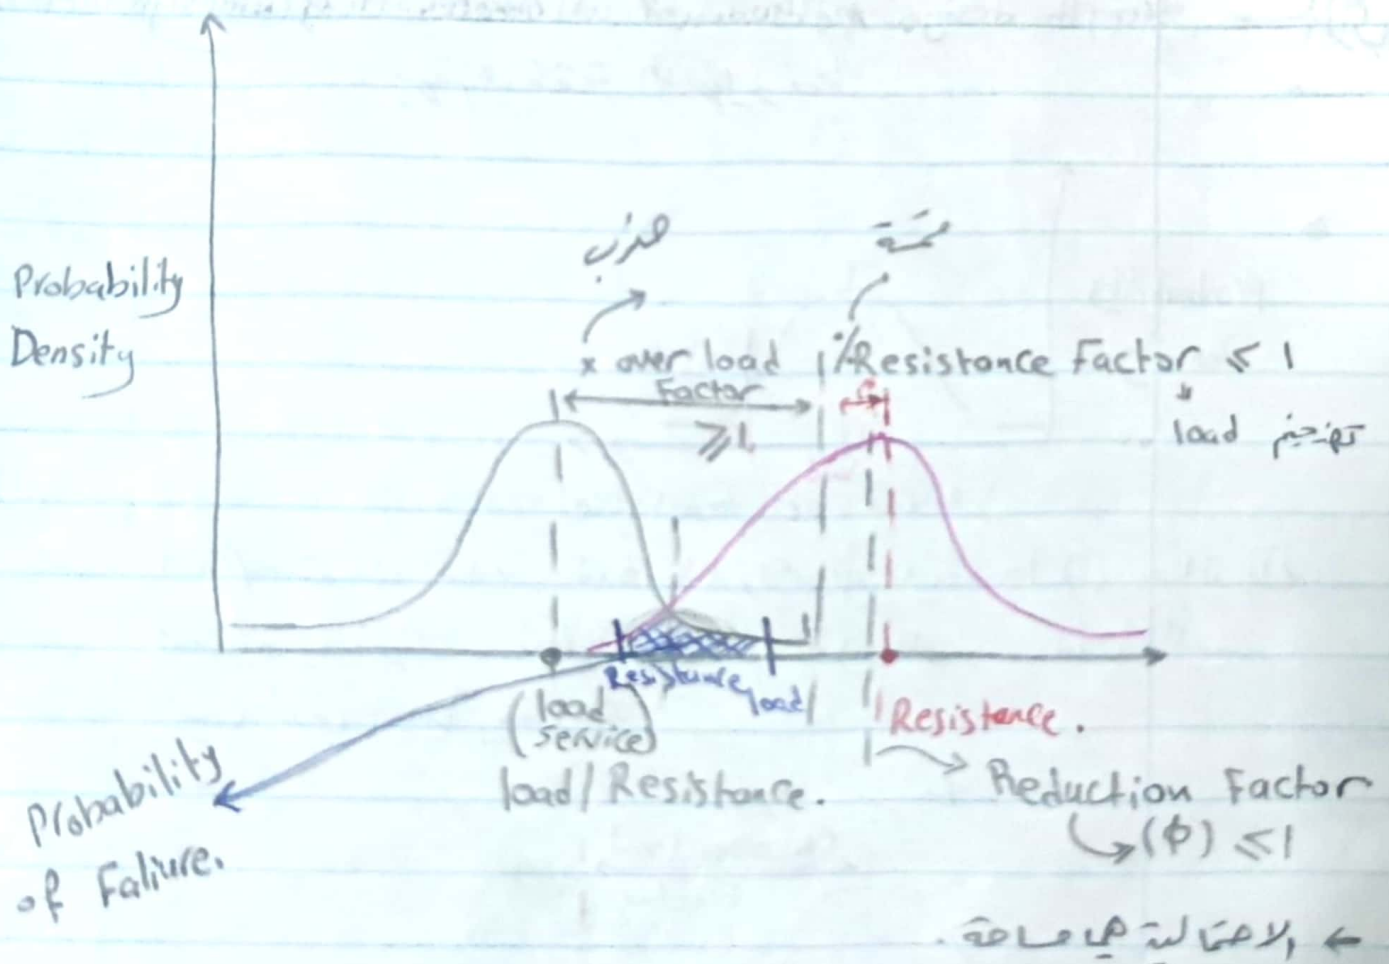 ضرب
قسمة
Probability
Density
x over load
Factor
⩾1
% Resistance Factor ⩽ 1
load تضخيم
Resistance
load
(load
service)
Resistance.
load / Resistance.
Reduction Factor
(Φ) ⩽1
Probability
of Faliure.
← الاحتمالية هي مساحة.